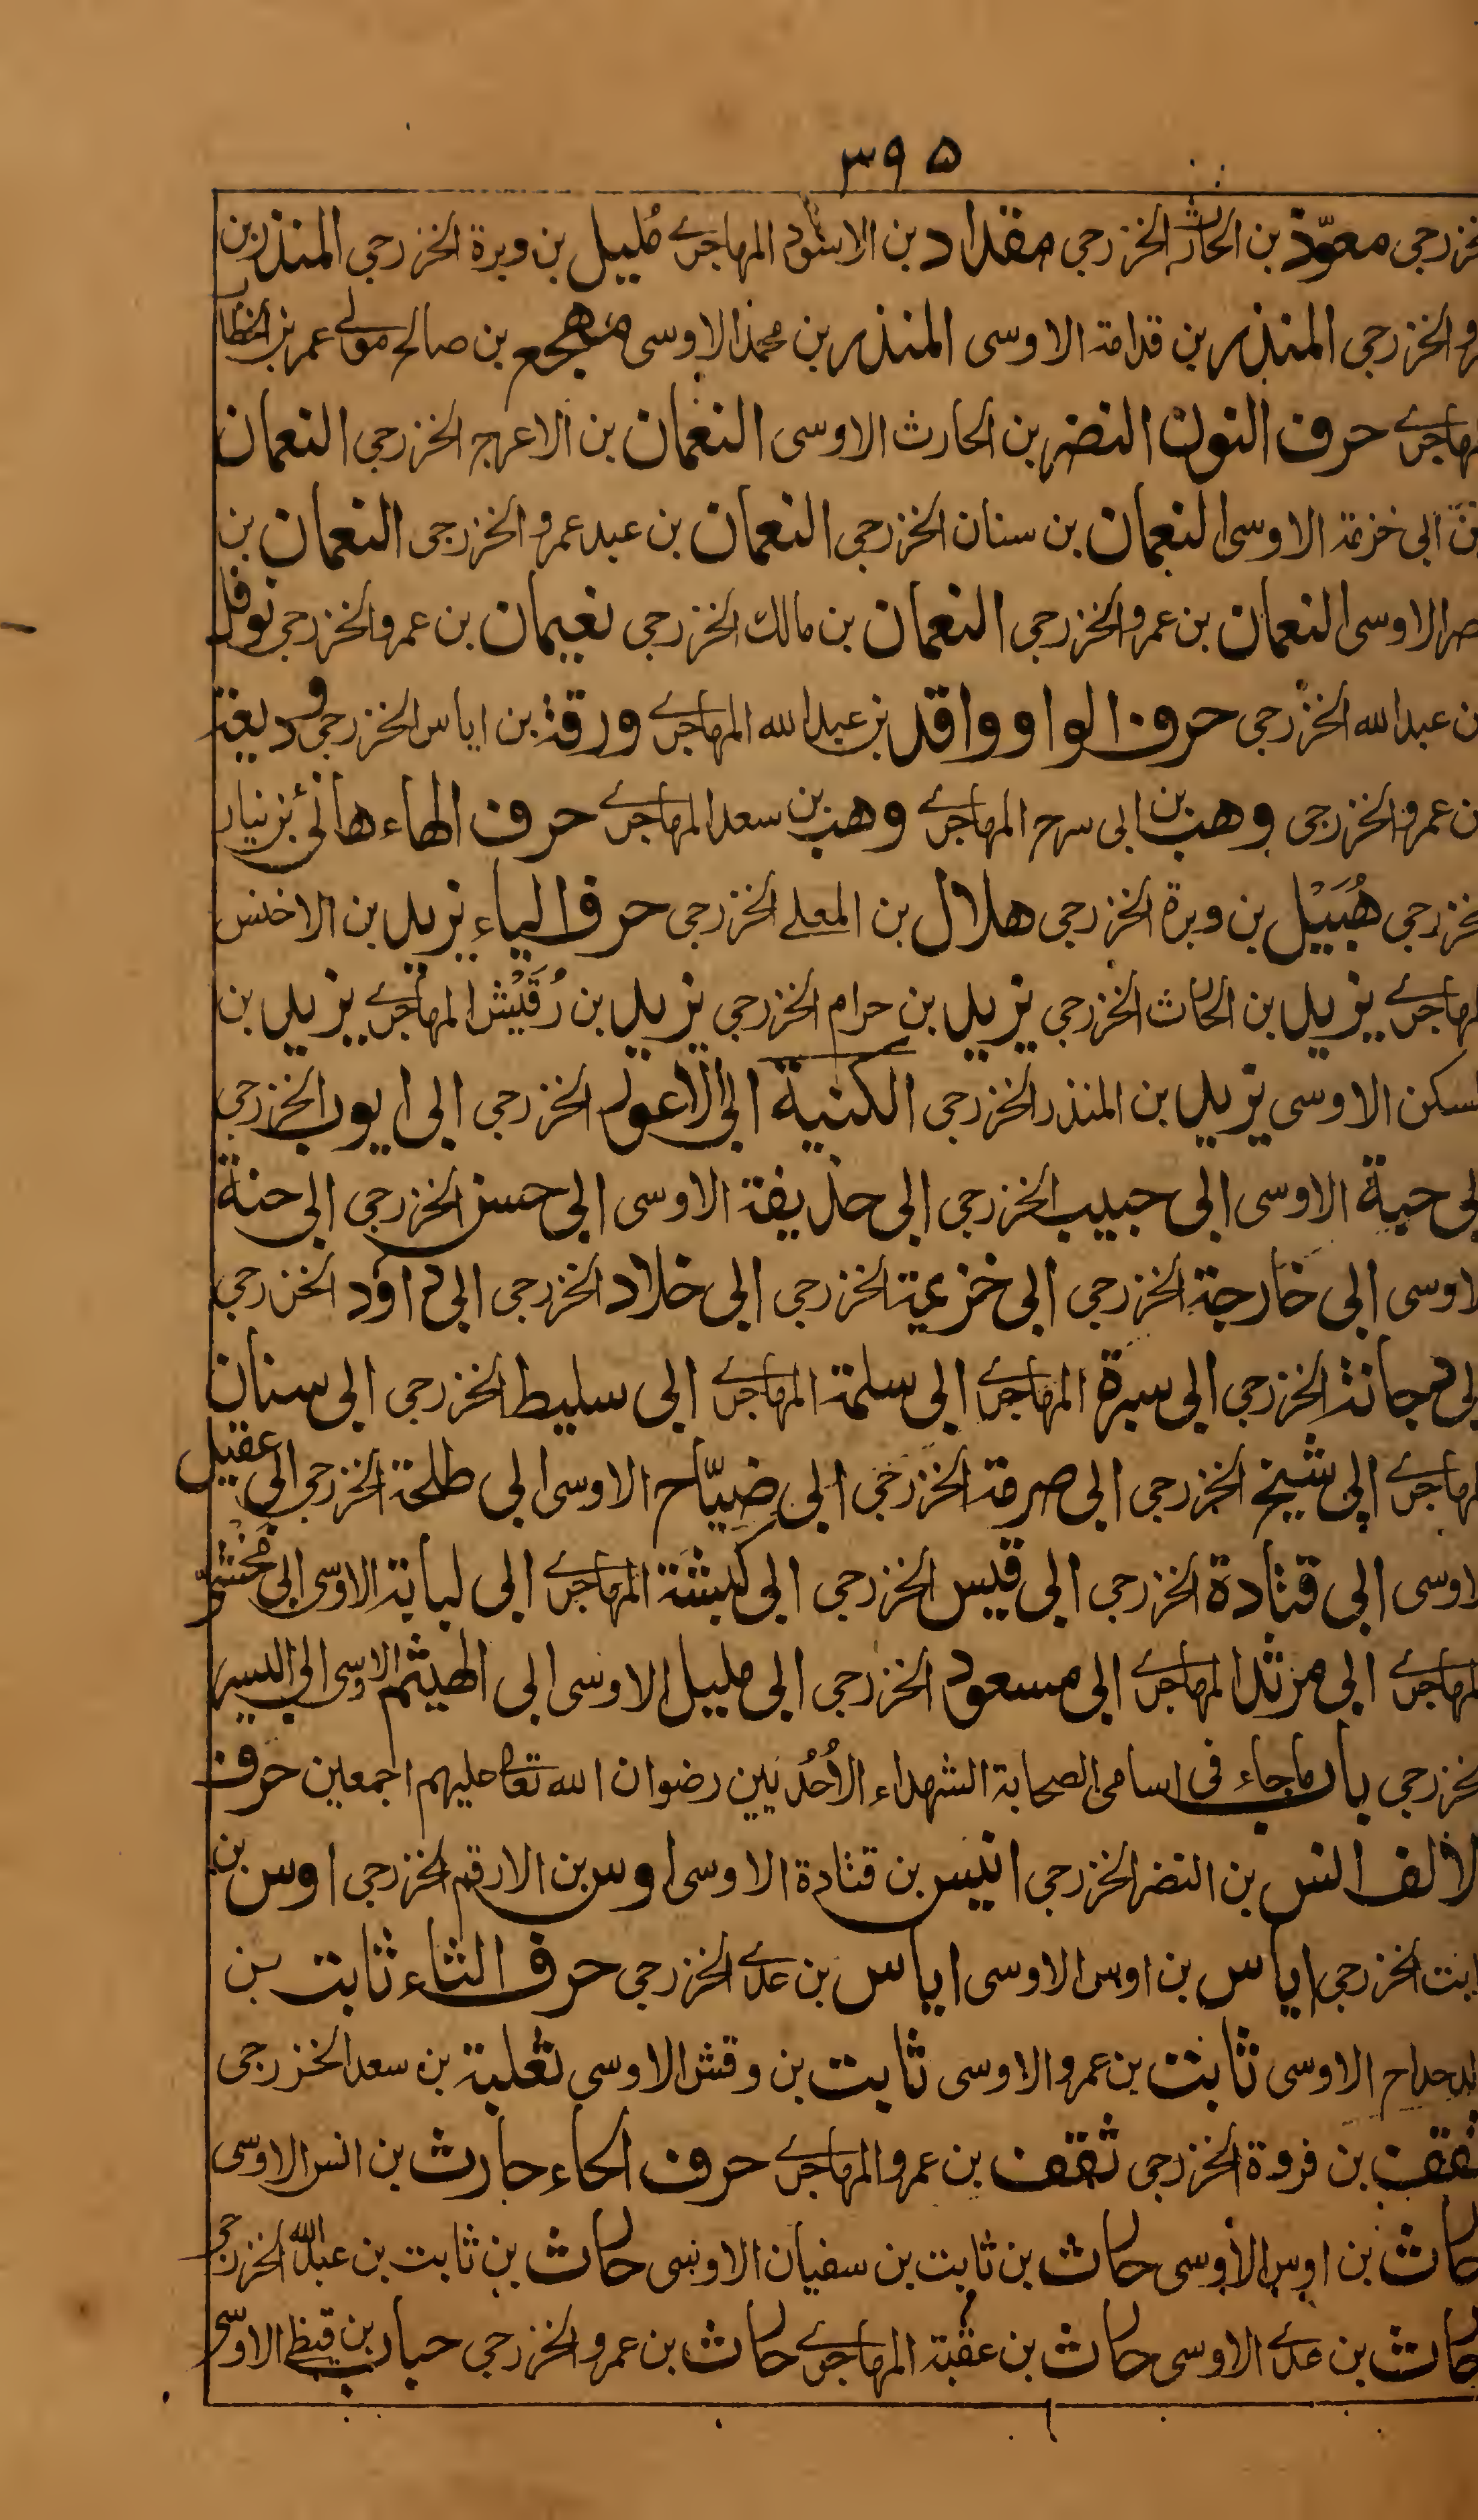 ٣٩٥
خزرجي معوّذ بن الحارث الخزرجي مقداد بن الاسود المهاجرے مُليل بن وبرة الخزرجي المنذر بن
الخزرجي المنذر بن قدامة الاوسى المنذر بن محمد الاوسى مهجع بن صالح مولے عمر بن الخطاب
لمهاجرے حرف النون النضر بن الحارث الاوسى النعمان بن الاعرج الخزرجي النعمان
ابي خزمة الاوسى النعمان بن سنان الخزرجي النعمان بن عبد عمرو الخزرجى النعمان بن
الاوسى النعمان بن عمرو الخزرجي النعمان بن مالك الخزرجي نعيمان بن عمرو الخزرجي نوفل
بن عبد الله الخزرجي حرف الواو واقد بن عبد الله المهاجرے ورقة بن اياس الخزرجي وديعة
بن عمرو الخزرجى وهب بن ابى سرح المهاجرے وهب بن سعد المهاجرے حرف الهاء هانئ بن نيار
خزرجي هُبَيْل بن وبرة الخزرجي هلال بن المعلے الخزرجي حرف الياء يزيد بن الاخنس
لمهاجرے يزيد بن الحارث الخزرجي يزيد بن حرام الخزرجي يزيد بن رُقَيْش المهاجرے يزيد بن
لسكن الاوسى يزيد بن المنذر الخزرجى الكنية ابى الاعور الخزرجي ابى ايوب الخزرجي
ابى حبة الاوسى ابى حبيب الخزرجي ابى حذيفة الاوسى ابى حسن الخزرجي ابى حنة
لاوسى ابى خارجة الخزرجي ابى خزيمة الخزرجي ابى خلاد الخزرجي ابى داؤد الخزرجي
ابى دجانة الخزرجي ابى سبرة المهاجرے ابى سلمة المهاجرے ابى سليط الخزرجي ابى سنان
لمهاجرے ابى شيخ الخزرجي ابى صرمة الخزرجي ابى ضيّاح الاوسى ابى طلحة الخزرجي ابى عقيل
لاوسى ابى قتادة الخزرجي ابى قيس الخزرجي ابى كبشة المهاجرے ابى لبابة الاوسى ابى مخشي
المهاجرے ابى مرثد المهاجرے ابى مسعود الخزرجي ابى مليل الاوسى ابى الهيثم الاوسى ابى اليسر
خزرجي باب ماجاء فى اسامى الصحابة الشهداء الاُحُديين رضوان الله تعالى عليهم اجمعين حرف
الالف انس بن النضر الخزرجي انيس بن قتادة الاوسى اوس بن الارقم الخزرجي اوس بن
ثابت الخزرجي اياس بن اوس الاوسى اياس بن عدے الخزرجي حرف الثاء ثابت بن
الدحداح الاوسى ثابت بن عمرو الاوسى ثابت بن وقش الاوسى ثعلبة بن سعد الخزرجى
ثقف بن فروة الخزرجي ثقف بن عمرو المهاجرے حرف الحاء حارث بن انس الاوسى
حارث بن اوس الاوسى حارث بن ثابت بن سفيان الاوسى حارث بن ثابت بن عبد الله الخزرجي
حارث بن عدے الاوسى حارث بن عقبة المهاجرے حارث بن عمرو الخزرجي حباب بن قيظي الاوسى